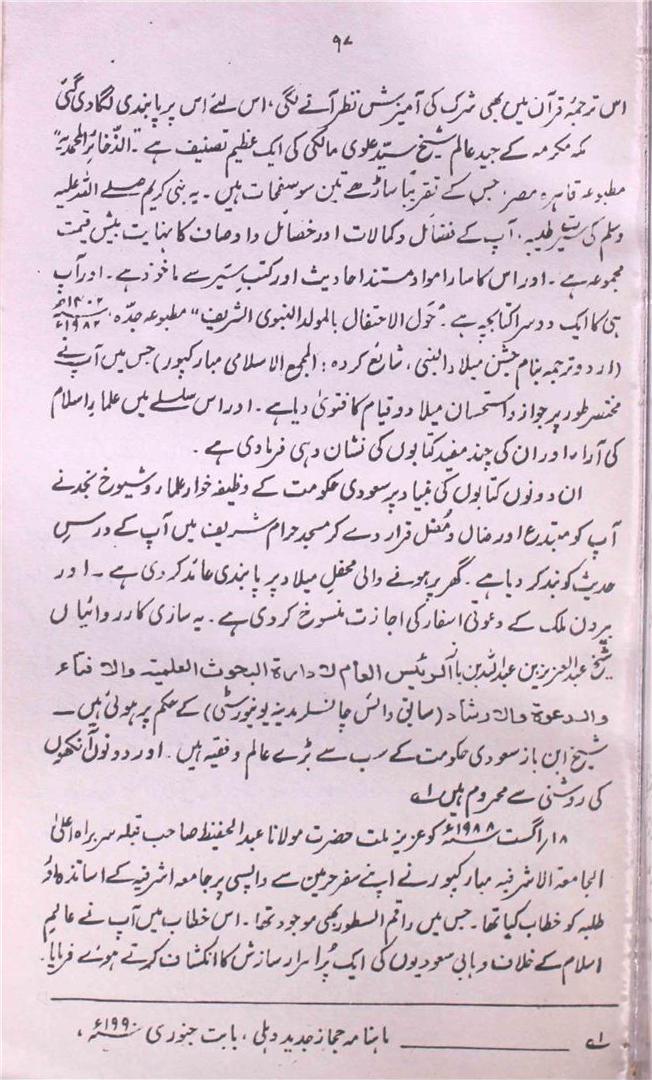 ۹۷
اس ترجمۂ قرآن میں بھی شرک کی آمیزش نظر آنے لگی، اس لئے اس پر پابندی لگا دی گئی
مکہ مکرمہ کے جید عالم شیخ سید علوی مالکی کی ایک عظیم تصنیف ہے "الذخائر المحمدیہ"
مطبوعہ قاہرہ مصر جس کے تقریباً ساڑھے تین سو صفحات ہیں۔ یہ نبی کریم صلے اللہ علیہ
وسلم کی سیرت طیبہ، آپ کے فضائل و کمالات اور خصائل و اوصاف کا نہایت بیش قیمت
مجموعہ ہے۔ اور اس کا سارا مواد مستند احادیث اور کتب سیر سے ماخوذ ہے۔ اور آپ
ہی کا ایک دوسرا کتابچہ ہے۔ "حول الاحتفال بالمولد النبوی الشریف" مطبوعہ جدہ، ۱۴۰۲ھ ۱۹۸۲ء
(اردو ترجمہ بنام جشن میلاد النبی، شائع کردہ: المجمع الاسلامی مبارکپور) جس میں آپ نے
مختصر طور پر جواز و استحسان میلاد و قیام کا فتویٰ دیا ہے۔ اور اس سلسلے میں علمائے اسلام
کی آراء اور ان کی چند مفید کتابوں کی نشان دہی فرما دی ہے۔
ان دونوں کتابوں کی بنیاد پر سعودی حکومت کے وظیفہ خوار علماء و شیوخ نجد نے
آپ کو مبتدع اور ضال و مُضل قرار دے کر مسجد حرام شریف میں آپ کے درسِ
حدیث کو بند کر دیا ہے۔ گھر پر ہونے والی محفلِ میلاد پر پابندی عائد کر دی ہے۔ اور
بیرون ملک کے دعوتی اسفار کی اجازت منسوخ کر دی ہے۔ یہ ساری کارروائیاں
شیخ عبدالعزیز بن عبداللہ بن باز الرئیس العام لادارۃ البحوث العلمیۃ والافتاء
والدعوۃ والارشاد (سابق وائس چانسلر مدینہ یونیورسٹی) کے حکم پر ہوئی ہیں۔
شیخ ابن باز سعودی حکومت کے سب سے بڑے عالم و فقیہ ہیں۔ اور دونوں آنکھوں
کی روشنی سے محروم ہیں ۱ے
۱۸/اگست ۱۹۸۸ء کو عزیز ملت حضرت مولانا عبدالحفیظ صاحب قبلہ سربراہ اعلیٰ
الجامعۃ الاشرفیہ مبارکپور نے اپنے سفر حرمین سے واپسی پر جامعہ اشرفیہ کے اساتذہ اور
طلبہ کو خطاب کیا تھا۔ جس میں راقم السطور بھی موجود تھا۔ اس خطاب میں آپ نے عالمِ
اسلام کے خلاف وہابی سعودیوں کی ایک پُر اسرار سازش کا انکشاف کرتے ہوئے فرمایا۔
۱ے ماہنامہ حجاز جدید دہلی، بابت جنوری ۱۹۹۰ء،